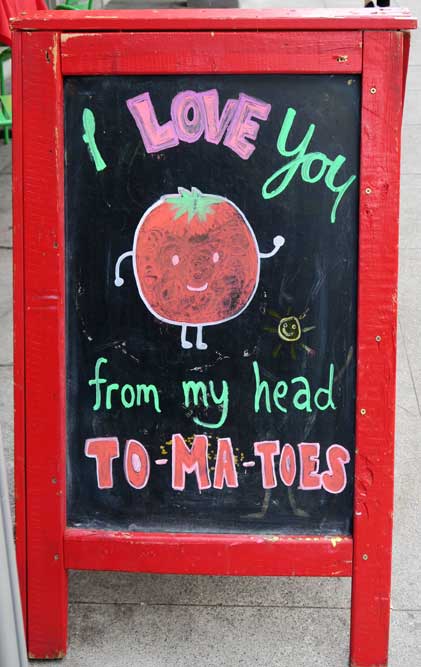 I LOVE You
from my head
TO-MA-TOES